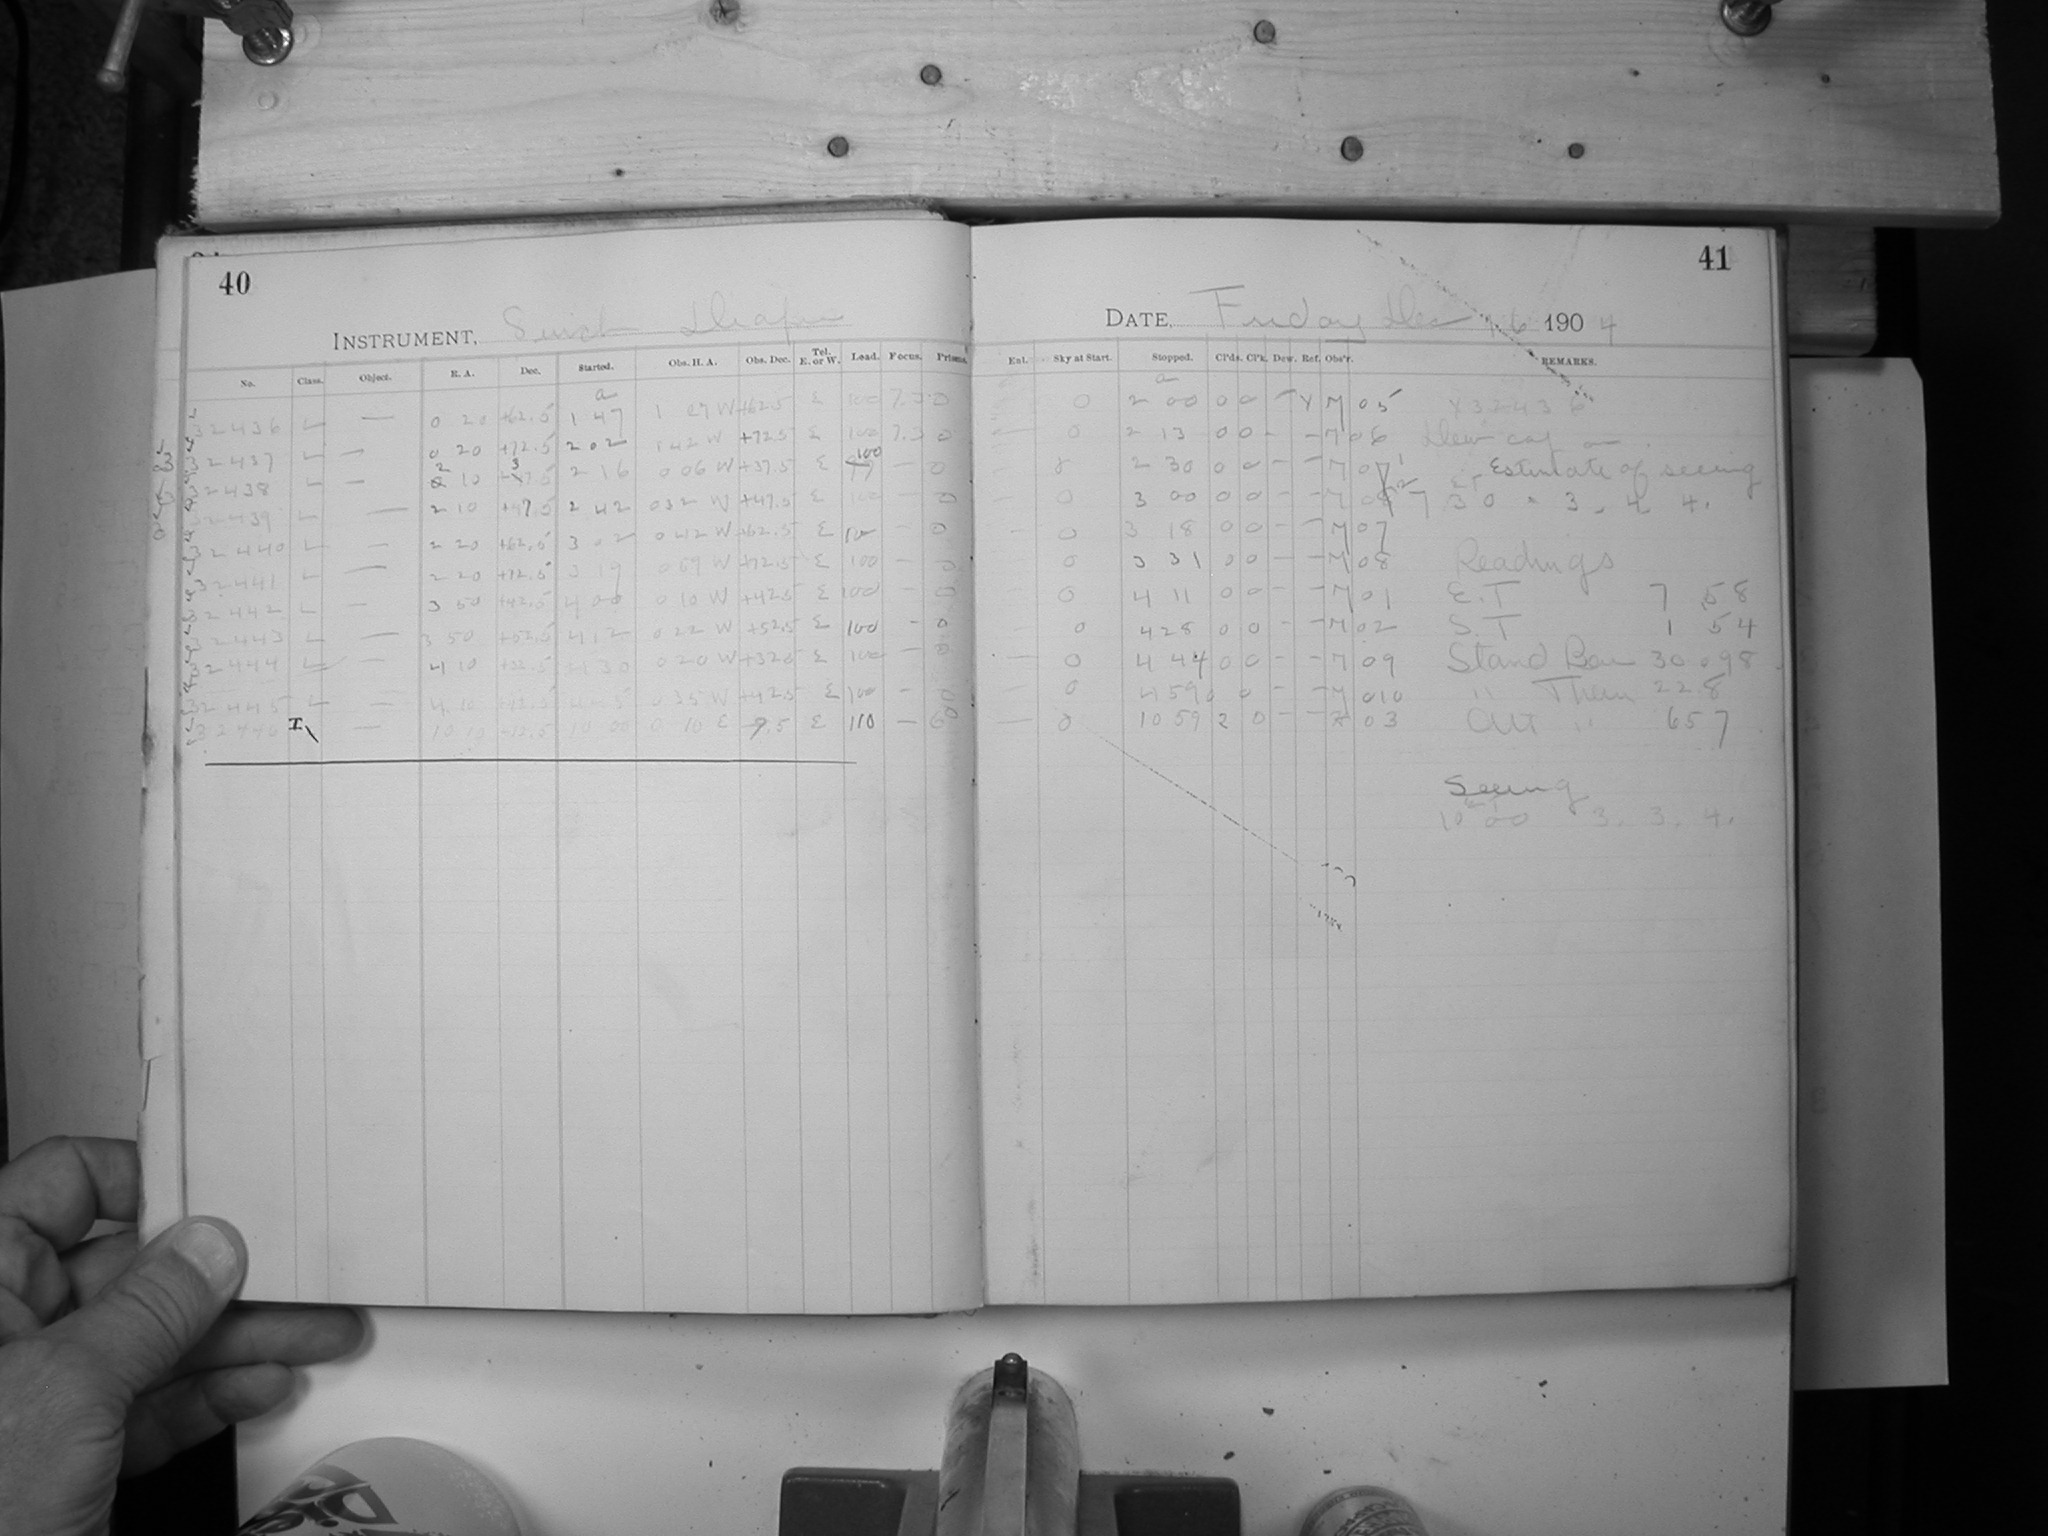 40
INSTRUMENT,
No. Class. Object. R. A. Dec. Started. Obs. H. A. Obs. Dec. Tel. E. or W. Lead. Focus. Prisms.
a
32436 L — 0 20 +62.5 1 47 1 27 W +62.5 E 100 7.3 0
32437 L — 0 20 +72.5 2 02 1 42 W +72.5 E 100 7.3 0
32438 L — 2 10 2 16 0 06 W +37.5 E 100 — 0
32439 L — 2 10 +47.5 2 42 0 32 W +47.5 E 100 — 0
32440 L — 2 20 +62.5 3 02 0 42 W +62.5 E 100 — 0
32441 L — 2 20 +72.5 3 19 0 59 W +72.5 E 100 — 0
32442 L — 3 50 +42.5 4 00 0 10 W +42.5 E 100 — 0
32443 L — 3 50 +52.5 4 12 0 22 W +52.5 E 100 — 0
32444 L — 4 10 +32.5 4 30 0 20 W +32.5 E 100 — 0
32445 L — 4 10 +42.5 4 45 0 35 W +42.5 E 100 — 0
32446 I — 10 10 10 00 0 10 E E 110 —
41
DATE, Friday Dec 16 1904
Enl. Sky at Start. Stopped. Cl'ds. Cl'k. Dew. Ref. Obs'r. REMARKS.
a
0 2 00 0 0 – Y M 05 Y32436
— 0 2 13 0 0 - - M 06 Dew cap on.
– 8 2 30 0 0 – – M Estimate of seeing
– 0 3 00 0 0 – – M 7 30 - 3. 4. 4.
– 0 3 18 0 0 – – M 07
0 3 31 0 0 – – M 08 Readings
0 4 11 0 0 – – M 01 E.T 7 58
0 4 28 0 0 – – M 02 S.T 1 54
— 0 4 44 0 0 – – M 09 Stand Bar 30.098
– 0 4 59 0 0 – – M 010 " Ther 22.8
— 0 10 59 2 0 – – R 03 Att " 657
Seeing
10 00 3. 3. 4.
Die